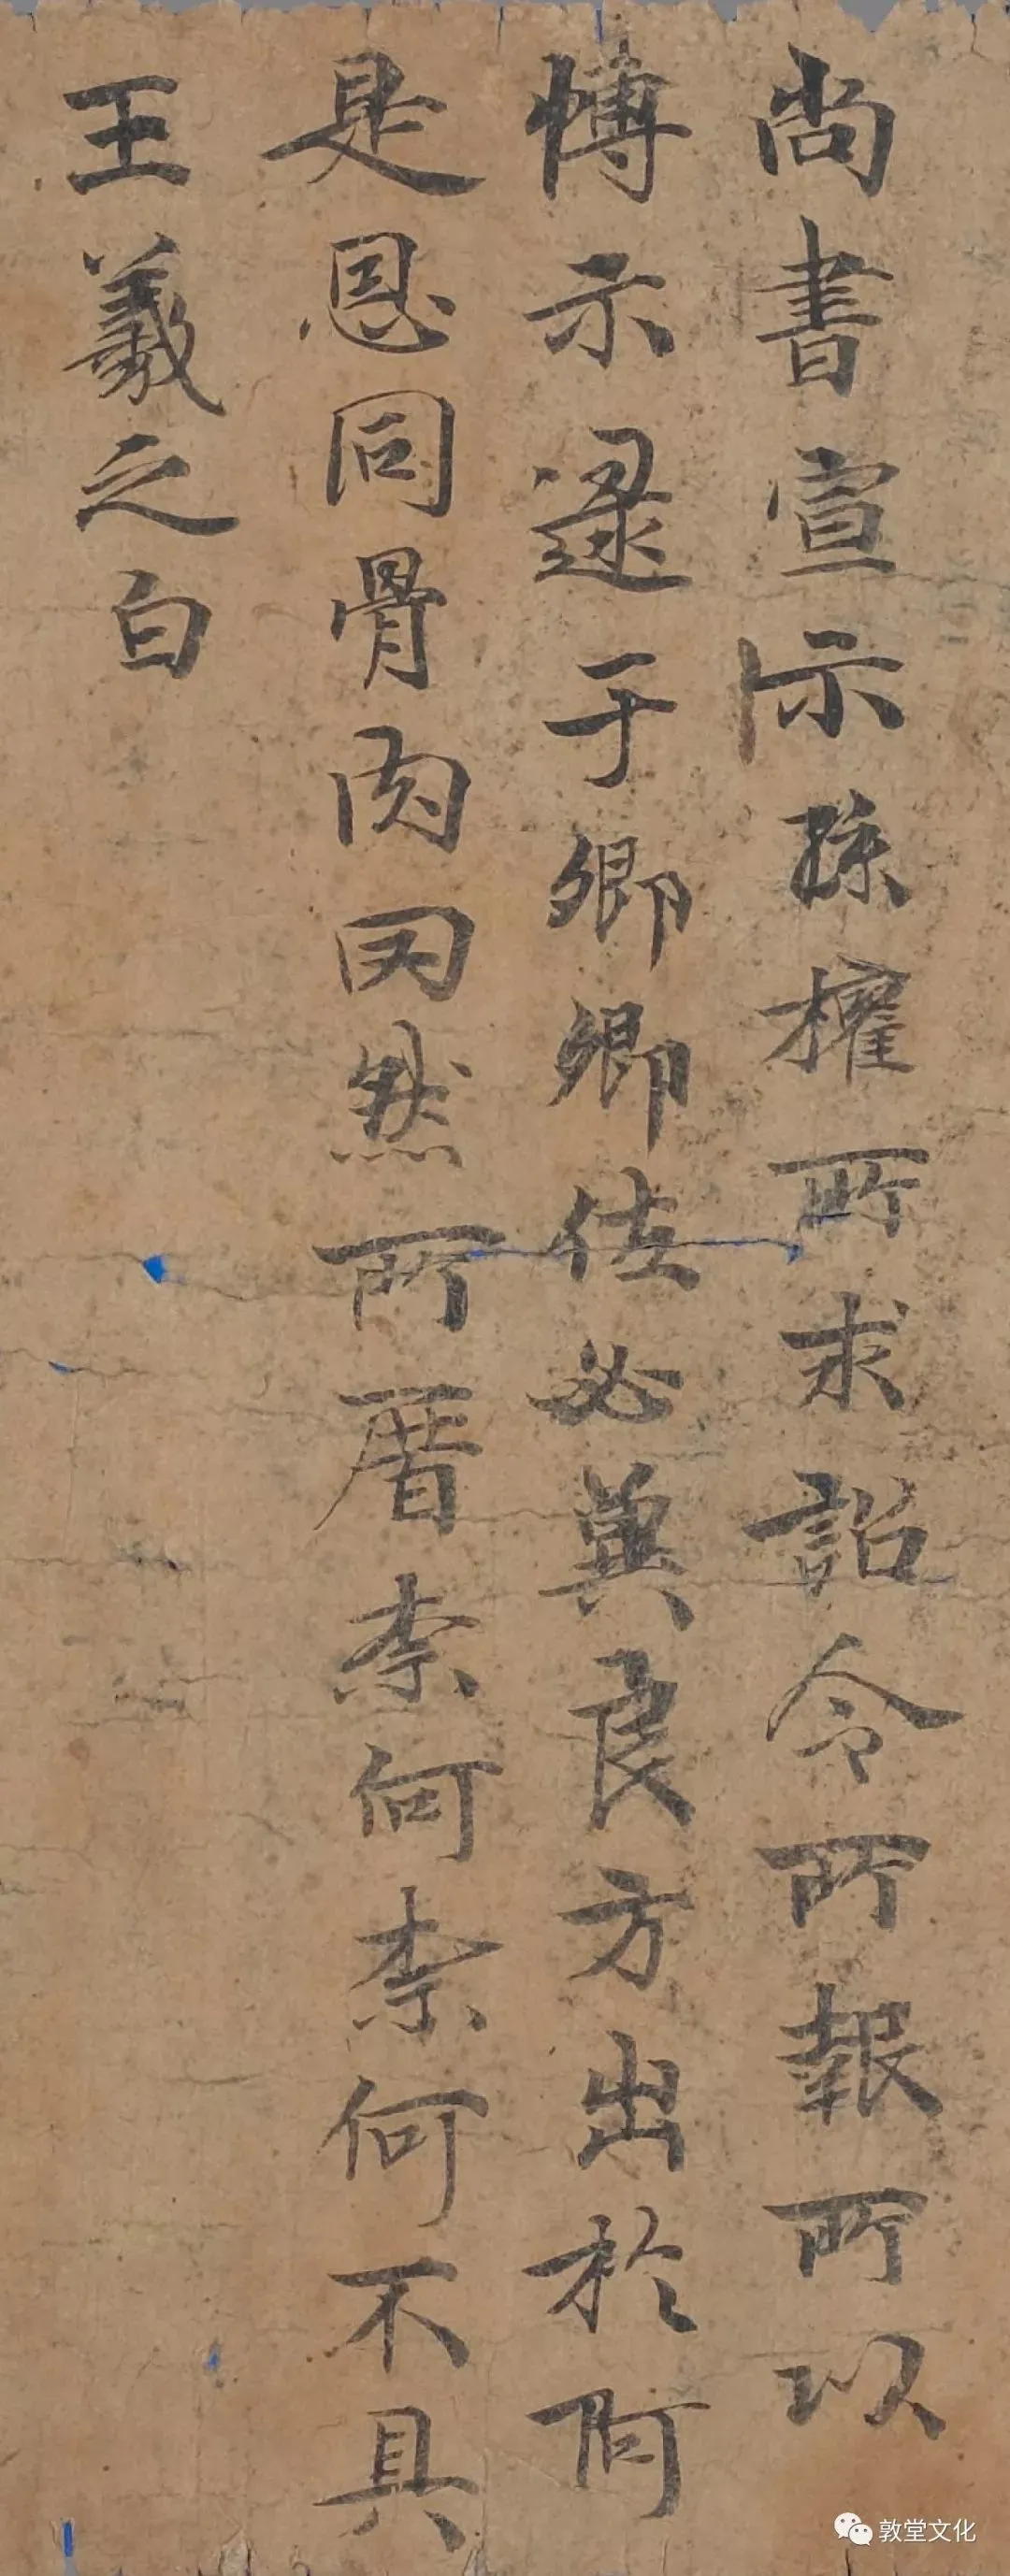 尚書宣示孫權所求詔令所報所以
愽示逮于卿卿佐必兾良方出於阿
是恩同骨肉罔然所厝柰何柰何不具
王羲之白
敦堂文化